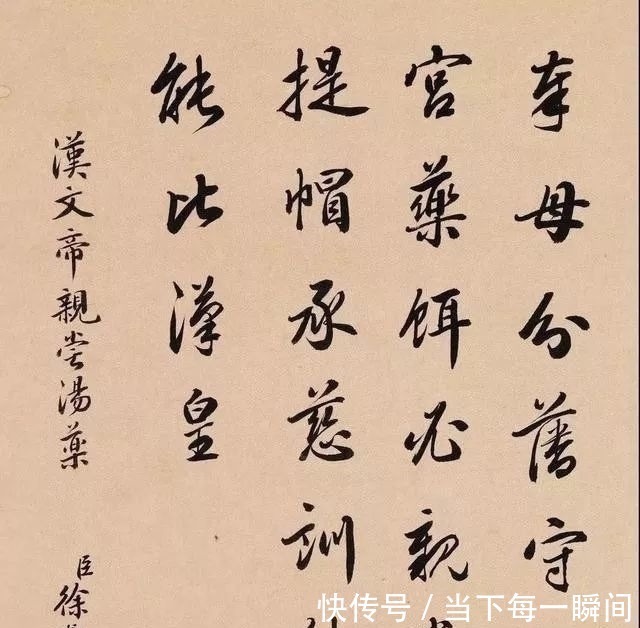 奉母分藩守
宮藥餌必親
提帽承慈訓
能比漢皇
漢文帝親嘗湯藥
臣徐
快传号/当下每一瞬间